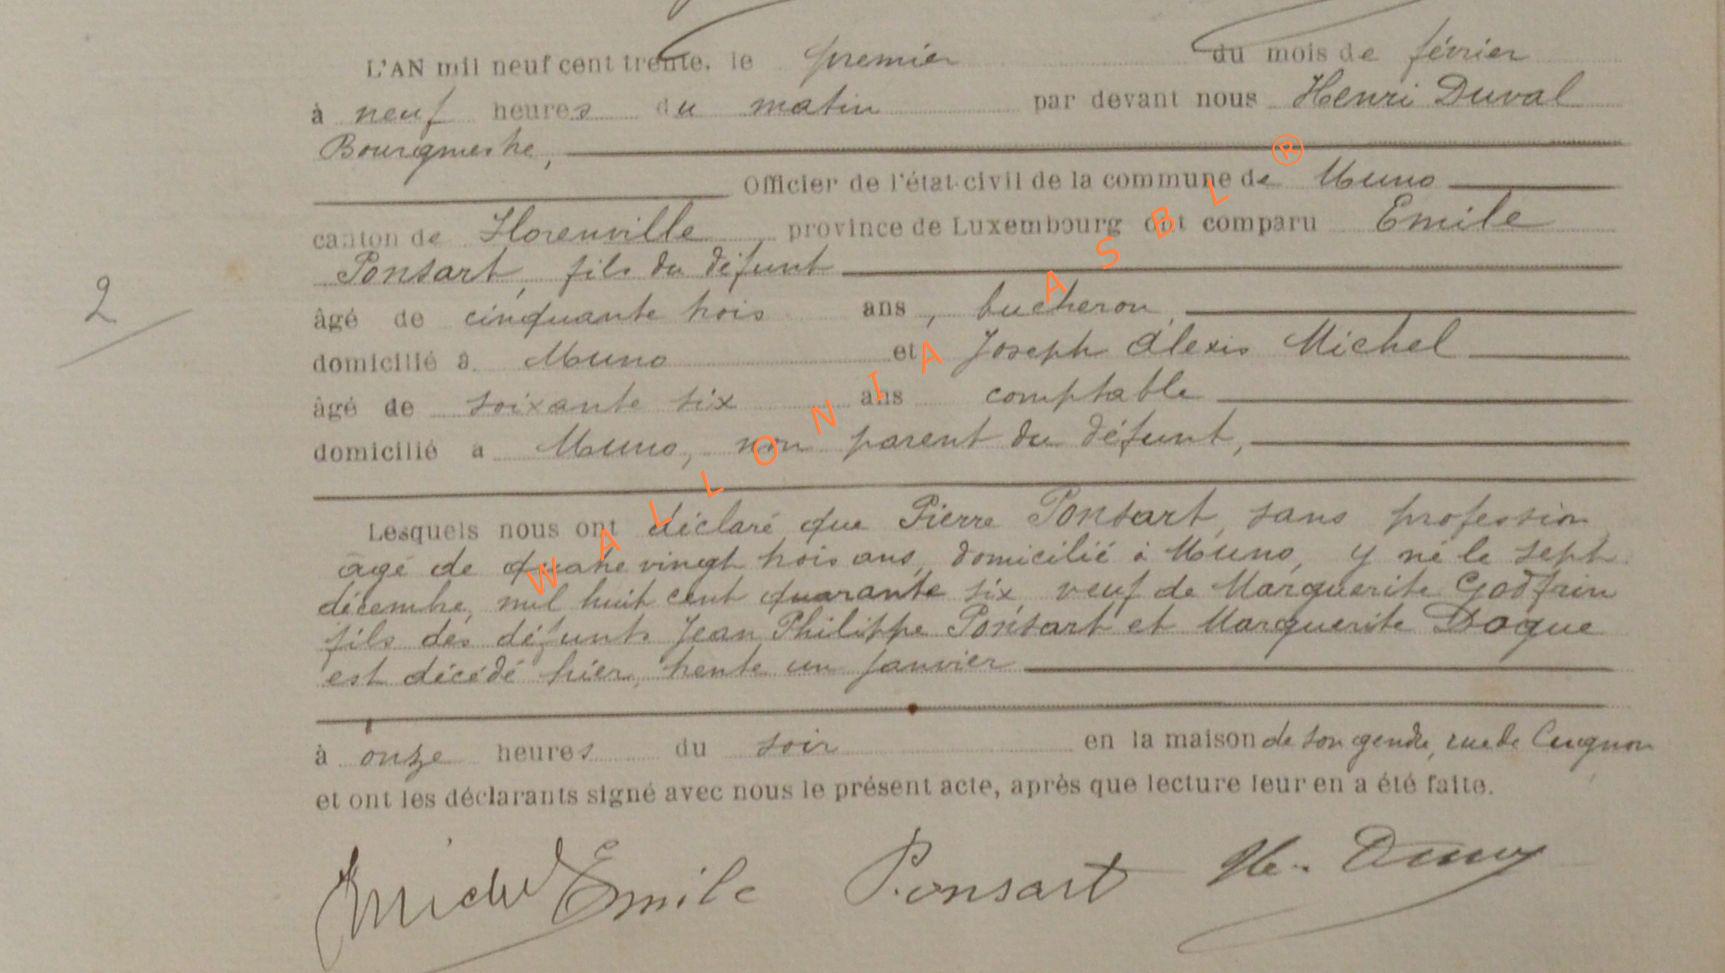 L'AN mil neuf cent trente, le premier du mois de février
à neuf heures du matin par devant nous Henri Duval
Bourgmestre,
Officier de l'état-civil de la commune de Muno
canton de Florenville, province de Luxembourg ont comparu Emile
Ponsart, fils du défunt
âgé de cinquante trois ans, bucheron,
domicilié à Muno et Joseph Alexis Michel
âgé de soixante six ans comptable
domicilié à Muno, non parent du défunt,
2
Lesquels nous ont déclaré que Pierre Ponsart, sans profession,
âgé de quatre vingt trois ans, domicilié à Muno, y né le sept
décembre, mil huit cent quarante six, veuf de Marguerite Godfrin
fils des défunts Jean Philippe Ponsart et Marguerite Doque
est décédé hier, trente un janvier
à onze heures du soir en la maison de son gendre, rue de Cugnon
et ont les déclarants signé avec nous le présent acte, après que lecture leur en a été faite.
JMichel Emile Ponsart He. Duval
WALLONIA ASBL ®